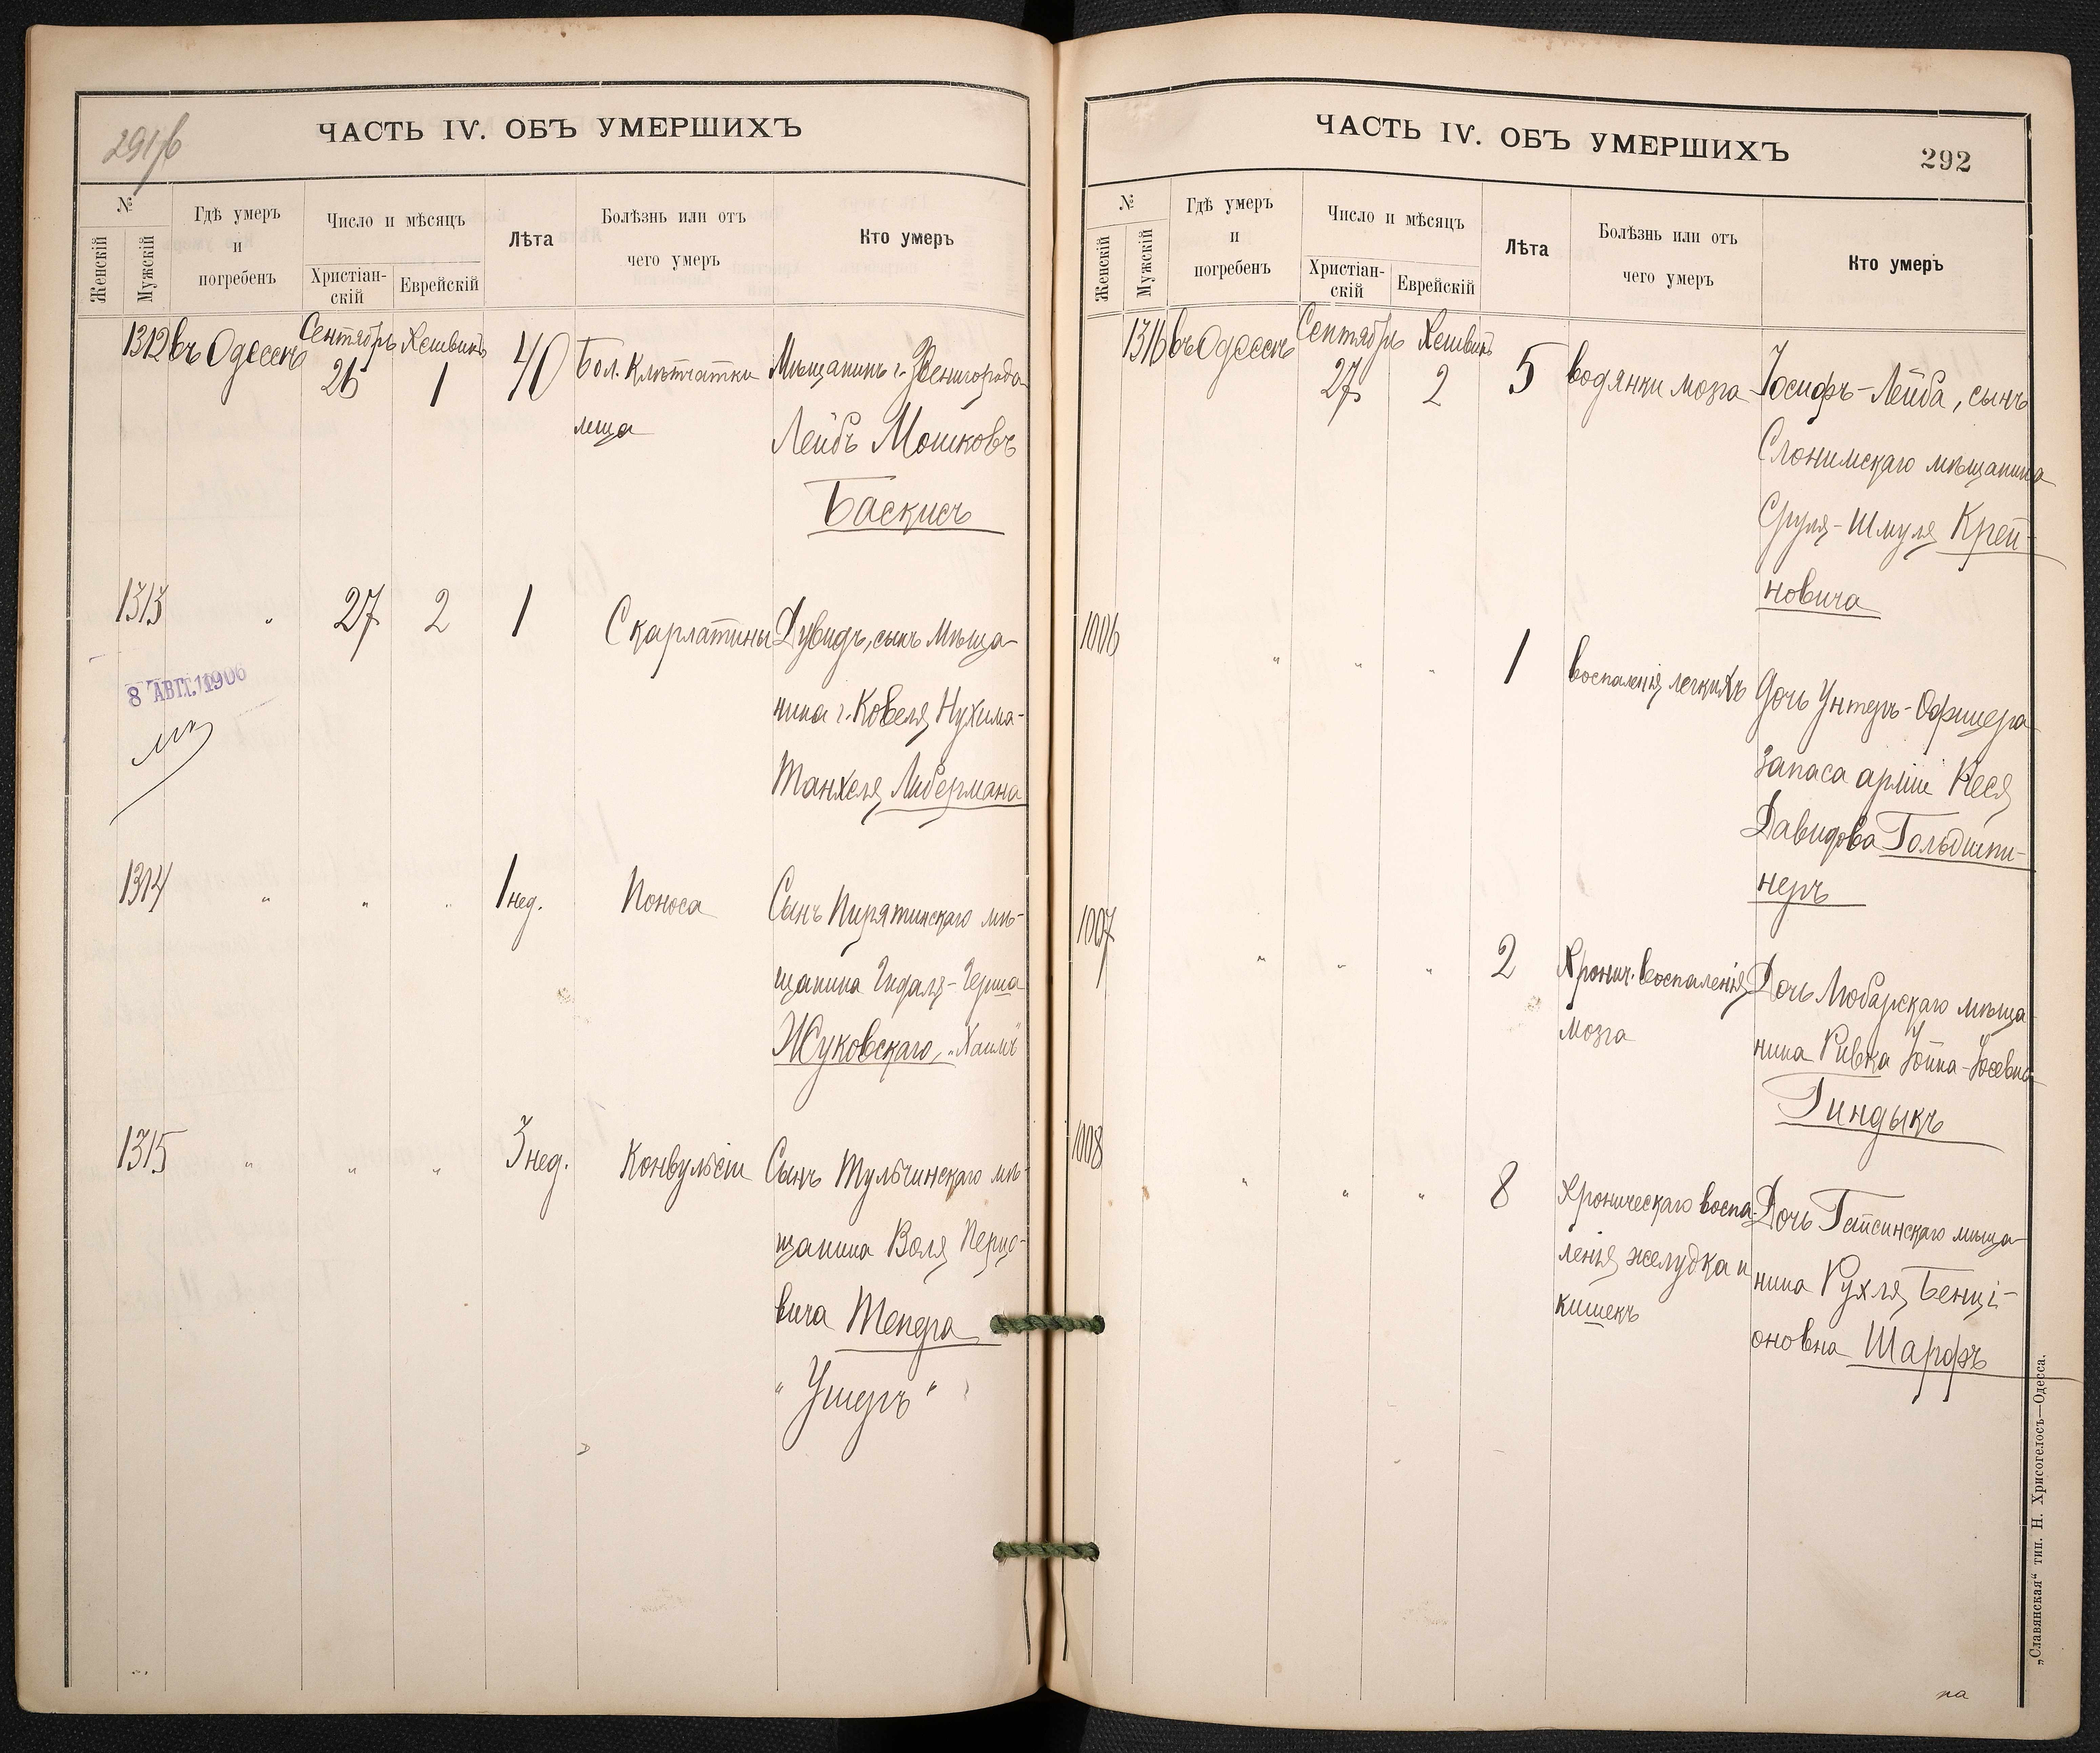 291/б
ЧАСТЬ IV. ОБЪ УМЕРШИХЪ
№
Женскій
Мужскій
Гдѣ умеръ
и
погребенъ
Число и мѣсяцъ
Христіан-
скій
Еврейскій
Лѣта
Болѣзнь или отъ
чего умеръ
Кто умеръ
1312 въ Одессѣ Сентябрь 26 Хешвинъ 1 40 Бол. Клѣтчатки Мѣщанинъ г. Звенигорода
лица Лейбъ Мошковъ
Баскисъ
1313 " 27 2 1 Скарлатины Дувидъ, сынъ мѣща-
нина г. Ковеля Нухима-
Танхеля Либермана
8 АВГ. 1906
1314 " " " 1 нед. Поноса Сынъ Пирятинскаго мѣ-
щанина Гидаля-Герша
Жуковскаго, "Хаимъ"
1315 " " " 3 нед. Конвульсіи Сынъ Тульчинскаго мѣ-
щанина Воля Перцо-
вича Тендра
"Ушеръ"
ЧАСТЬ IV. ОБЪ УМЕРШИХЪ
292
№
Женскій
Мужскій
Гдѣ умеръ
и
погребенъ
Число и мѣсяцъ
Христіан-
скій
Еврейскій
Лѣта
Болѣзнь или отъ
чего умеръ
Кто умеръ
1316 въ Одессѣ Сентябрь 27 Хешвинъ 2 5 водянки мозга Іосифъ-Лейба, сынъ
Слонимскаго мѣщанина
Сруля-Шмуля Крей-
новича
1006 " " " 1 воспаленія легкихъ Дочь Унтеръ-Офицера
запаса арміи Кеся
Давидова Гольдшти-
неръ
1007 " " " 2 Хронич. воспаленія Дочь Любарскаго мѣща-
мозга нина Ривка Іойна-Іосевна
Гиндыкъ
1008 " " " 8 Хроническаго воспа- Дочь Гайсинскаго мѣща-
ленія желудка и нина Рухля Бенці-
кишекъ оновна Шарфъ
„Славянская“ тип. Н. Хрисогелосъ—Одесса.
на